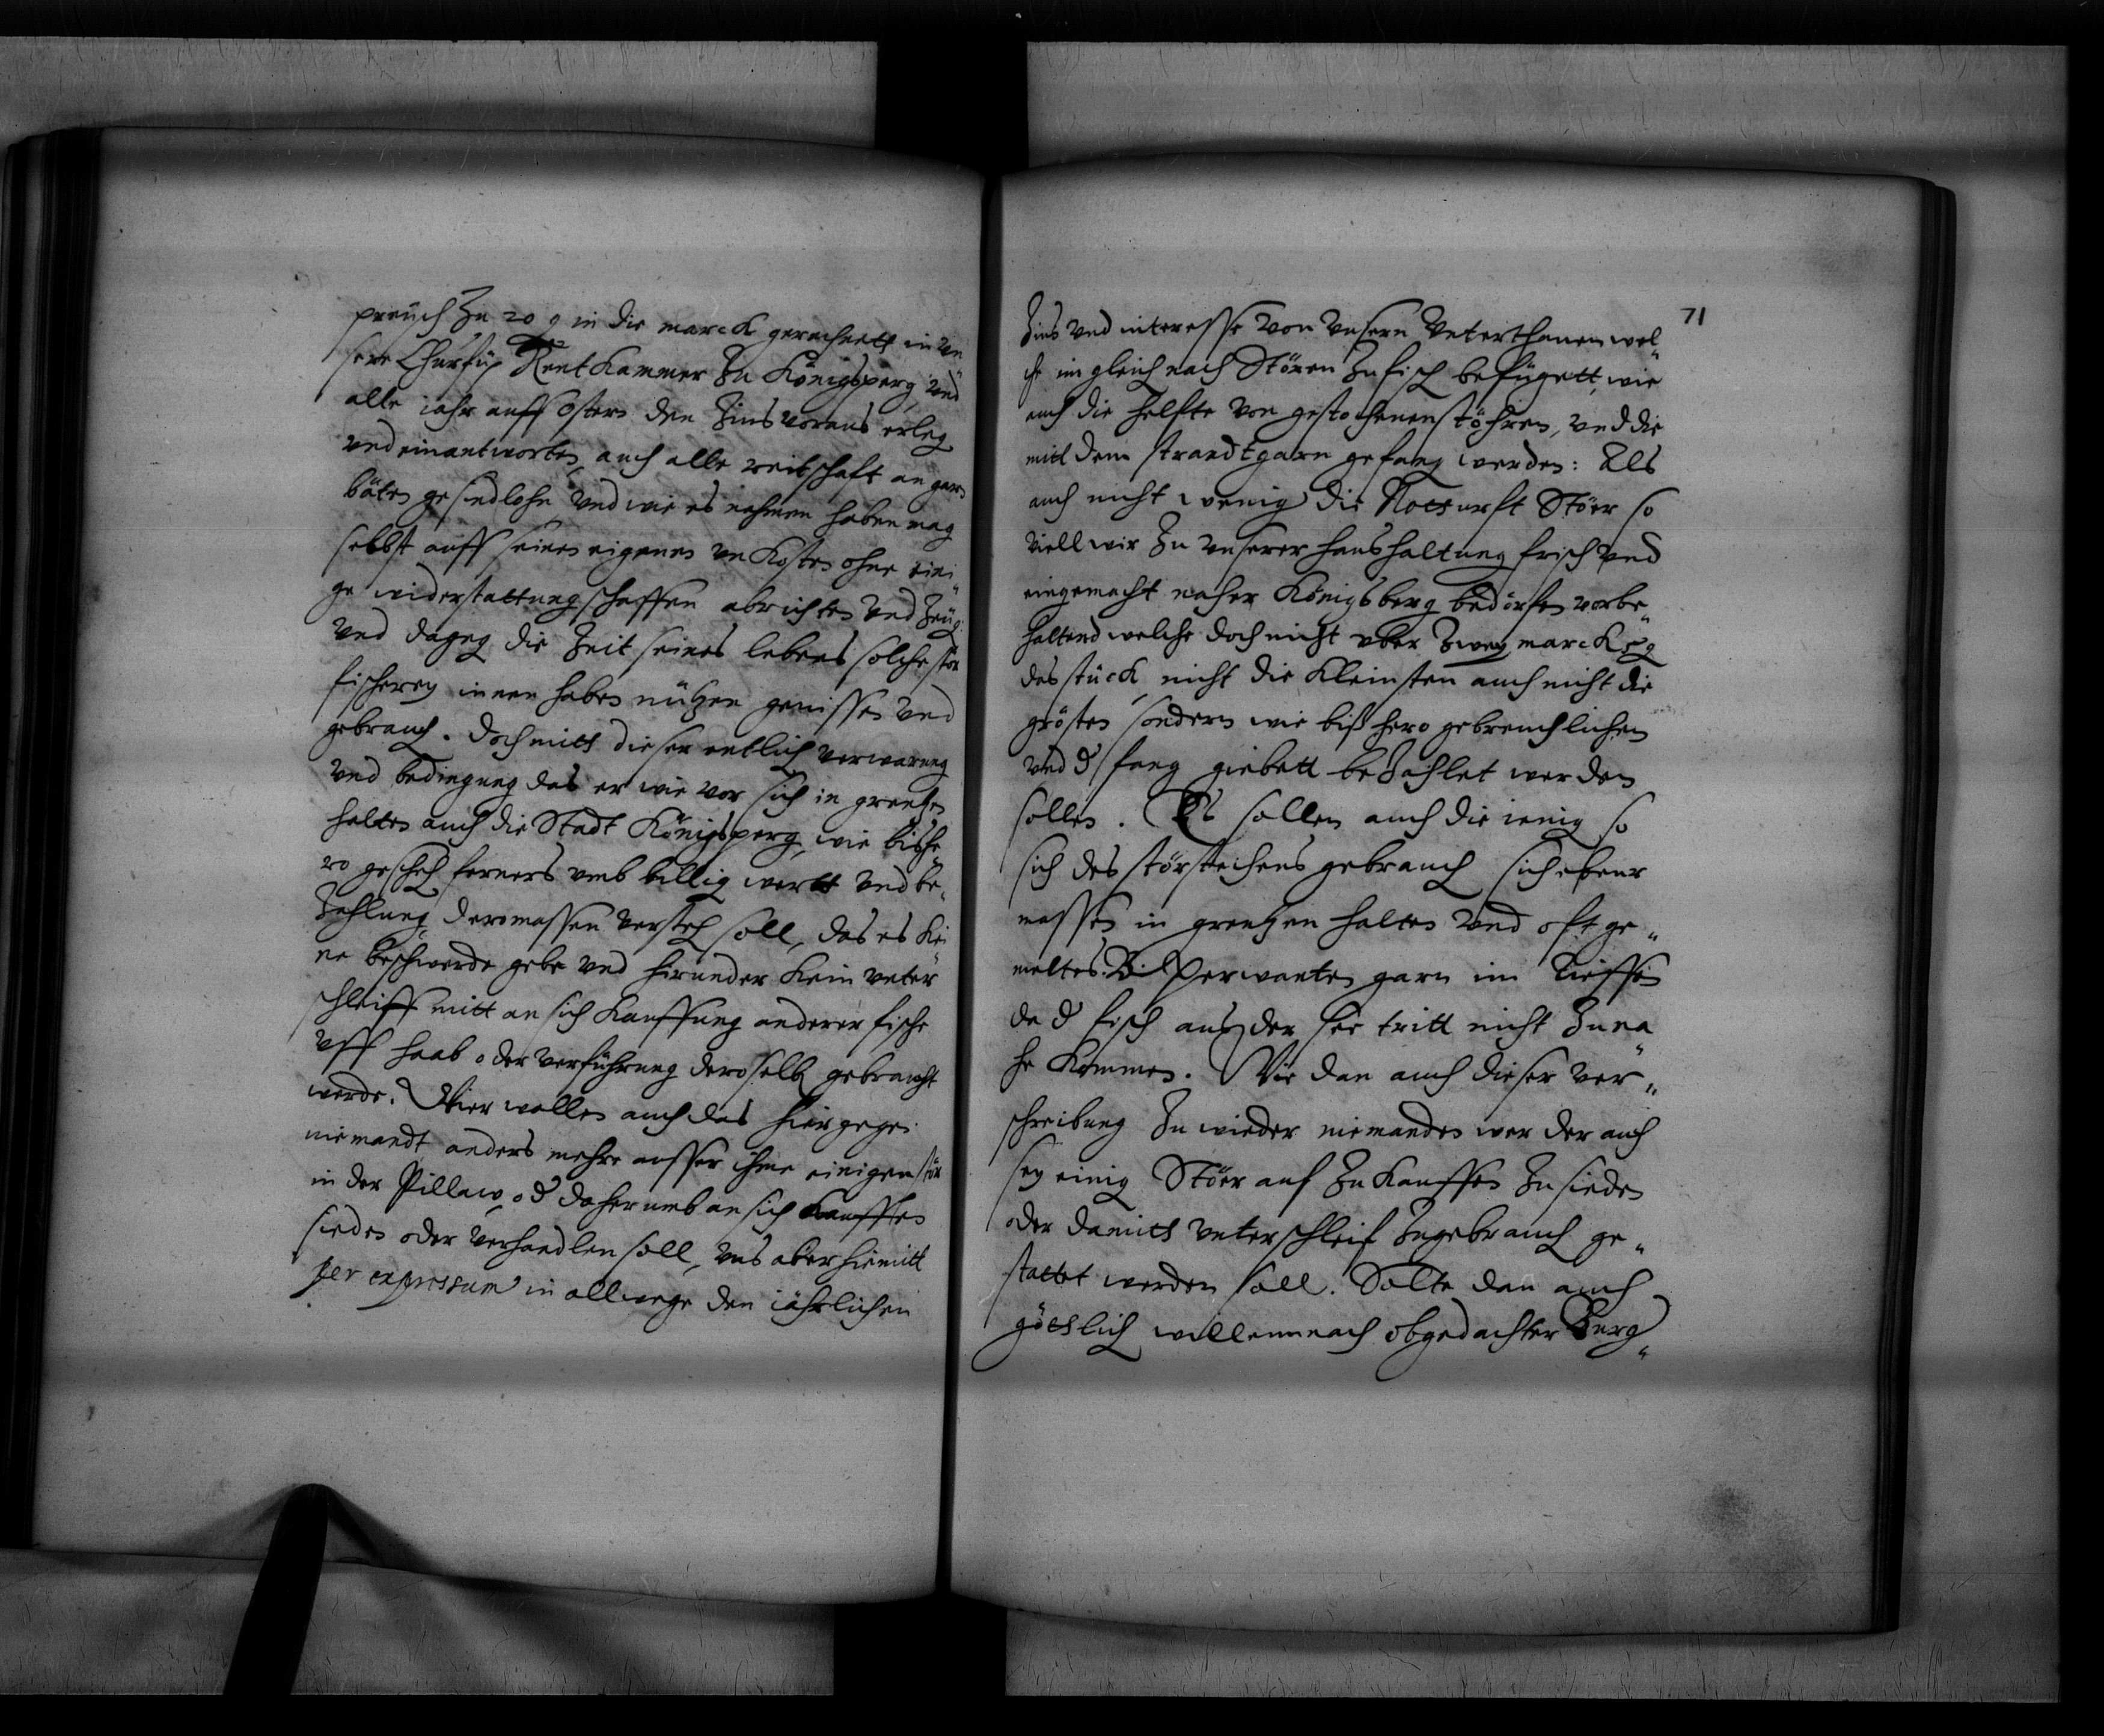 preüsch Zu 20 g in die marck gerechnett in un
sere Churfüs Rent Kammer Zu Königsperg, und
alle iahr auff Ostern den Zins voraus erleg
und einantworten, auch alle reitschaft an garn
böten gesindlohn und wie es nahmen haben mag
selbst auff seinen eigenen un Kosten ohne eini„
ge widerstattung schaffen abrichten und Zeug
und dageg die Zeit seines lebens solche stör
fischerey innen haben nützen genissen und
gebrauch. Doch mitt dieser entlich verwarung
und bedingung das er wie vor sich in grentzen
halten auch die Stadt Königsperg, wie bishe„
ro gescheh ferners umb billig wertt und be„
Zahlung, dermassen versteh soll, das es Kei
ne beschwerde gebe und hirunder Kein unter
schleiff mitt an sich Kauffung anderer fische
uff haab oder verführung deroselb gebraucht
werde. Wier wollen auch das hiergegen
niemandt anders mehre ausser ihme einigen stör
in der Pillaw od daherumb an sich Kauffen
sieden oder verhandlen soll, uns aber hiemitt
per expressum in allwege den iährlichen
71
Zins und interesse von unsern Unterthanen wel„
che im gleich nach Stören Zufisch befügett, wie
auch die helfte von gestochenen störhen, und die
mitt dem strandtgarn gefang werden: Als
auch nicht wenig die Notturft Stöer so
viell wir Zu unserer haushaltung frisch und
eingemacht naher Königsberg bedörfen vorbe„
haltend welche doch nicht uber Zwey marck
das stück, nicht die Kleinsten auch nicht die
grösten sondern wie biß hero gebreuchlichen
und d fang giebett beZahlet werden
sollen. Es sollen auch die ienig so
sich des störstechens gebrauch sich ebener
massen in grentzen halten und oftge„
meltes verwanten garn im Tieffen
da d fisch aus der see tritt nicht Zu na„
he Kommen. Wie dan auch dieser ver„
schreibung Zu wieder niemanden wer der auch
sey einig Stöer auf Zu Kauffen Zu sieden
oder damitt unterschleif Zugebrauch ge„
stattet werden soll. Solte dan auch
göttlich willennach obgedachter Burg„